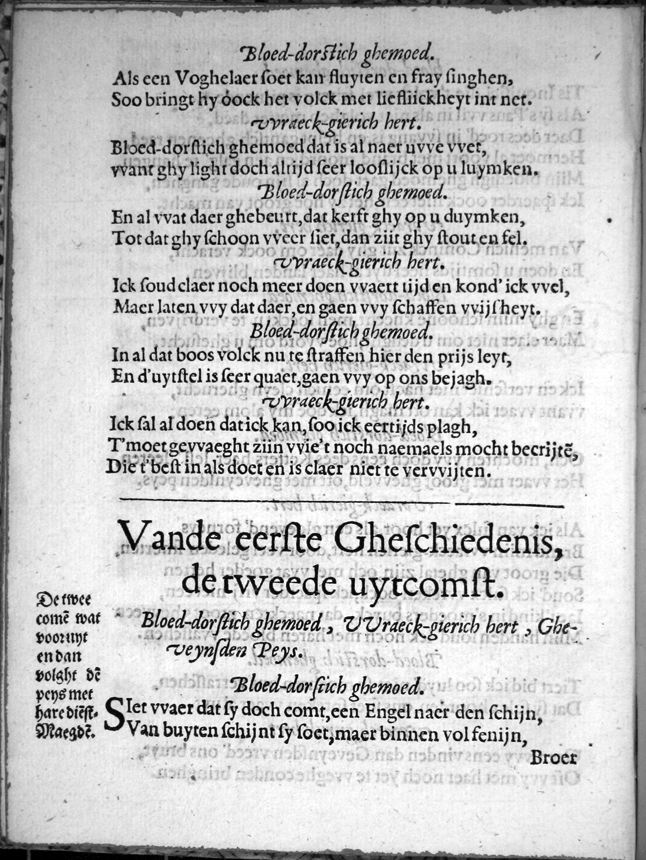 Bloed-dorſtich ghemoed.
Als een Voghelaer ſoet kan fluyten en fray ſinghen,
Soo bringt hy óock het volck met liefliickheyt int net.
VVraeck-gierich hert.
Bloed-dorſtich ghemoed dat is al naer uvve vvet,
VVant ghy light doch altijd ſeer looſlijck op u luymken.
Bloed-dorſtich ghemoed.
En al vvat daer ghebeurt, dat kerft ghy op u duymken,
Tot dat ghy ſchoon vveer ſiet, dan ziit ghy ſtout en fel.
VVraeck-gierich hert.
Ick ſoud claer noch meer doen vvaert tijd en kond' ick vvel,
Maer laten vvy dat daer, en gaen vvy ſchaffen vvijſheyt.
Bloed-dorſtich ghemoed.
In al dat boos volck nu te ſtraffen hier den prijs leyt,
En d'uytſtel is ſeer quaet, gaen vvy op ons bejagh.
VVraeck-gierich hert.
Ick ſal al doen dat ick kan, ſoo ick eertijds plagh,
T'moet gevvaeght ziin vvie't noch naemaels mocht becrijtē,
Die t'beſt in als doet en is claer niet te vervvijten.
Vande eerſte Gheſchiedenis,
de tweede uytcomſt.
De twee
comē wat
vooruyt
en dan
volght dē
peys met
hare dieſt-
Maegdē.
Bloed-dorſtich ghemoed, VVraeck-gierich hert, Ghe-
veynſden Peys.
Bloed-dorſtich ghemoed.
SIet vvaer dat ſy doch comt, een Engel naer den ſchijn,
Van buyten ſchijnt ſy ſoet, maer binnen vol fenijn,
Broer